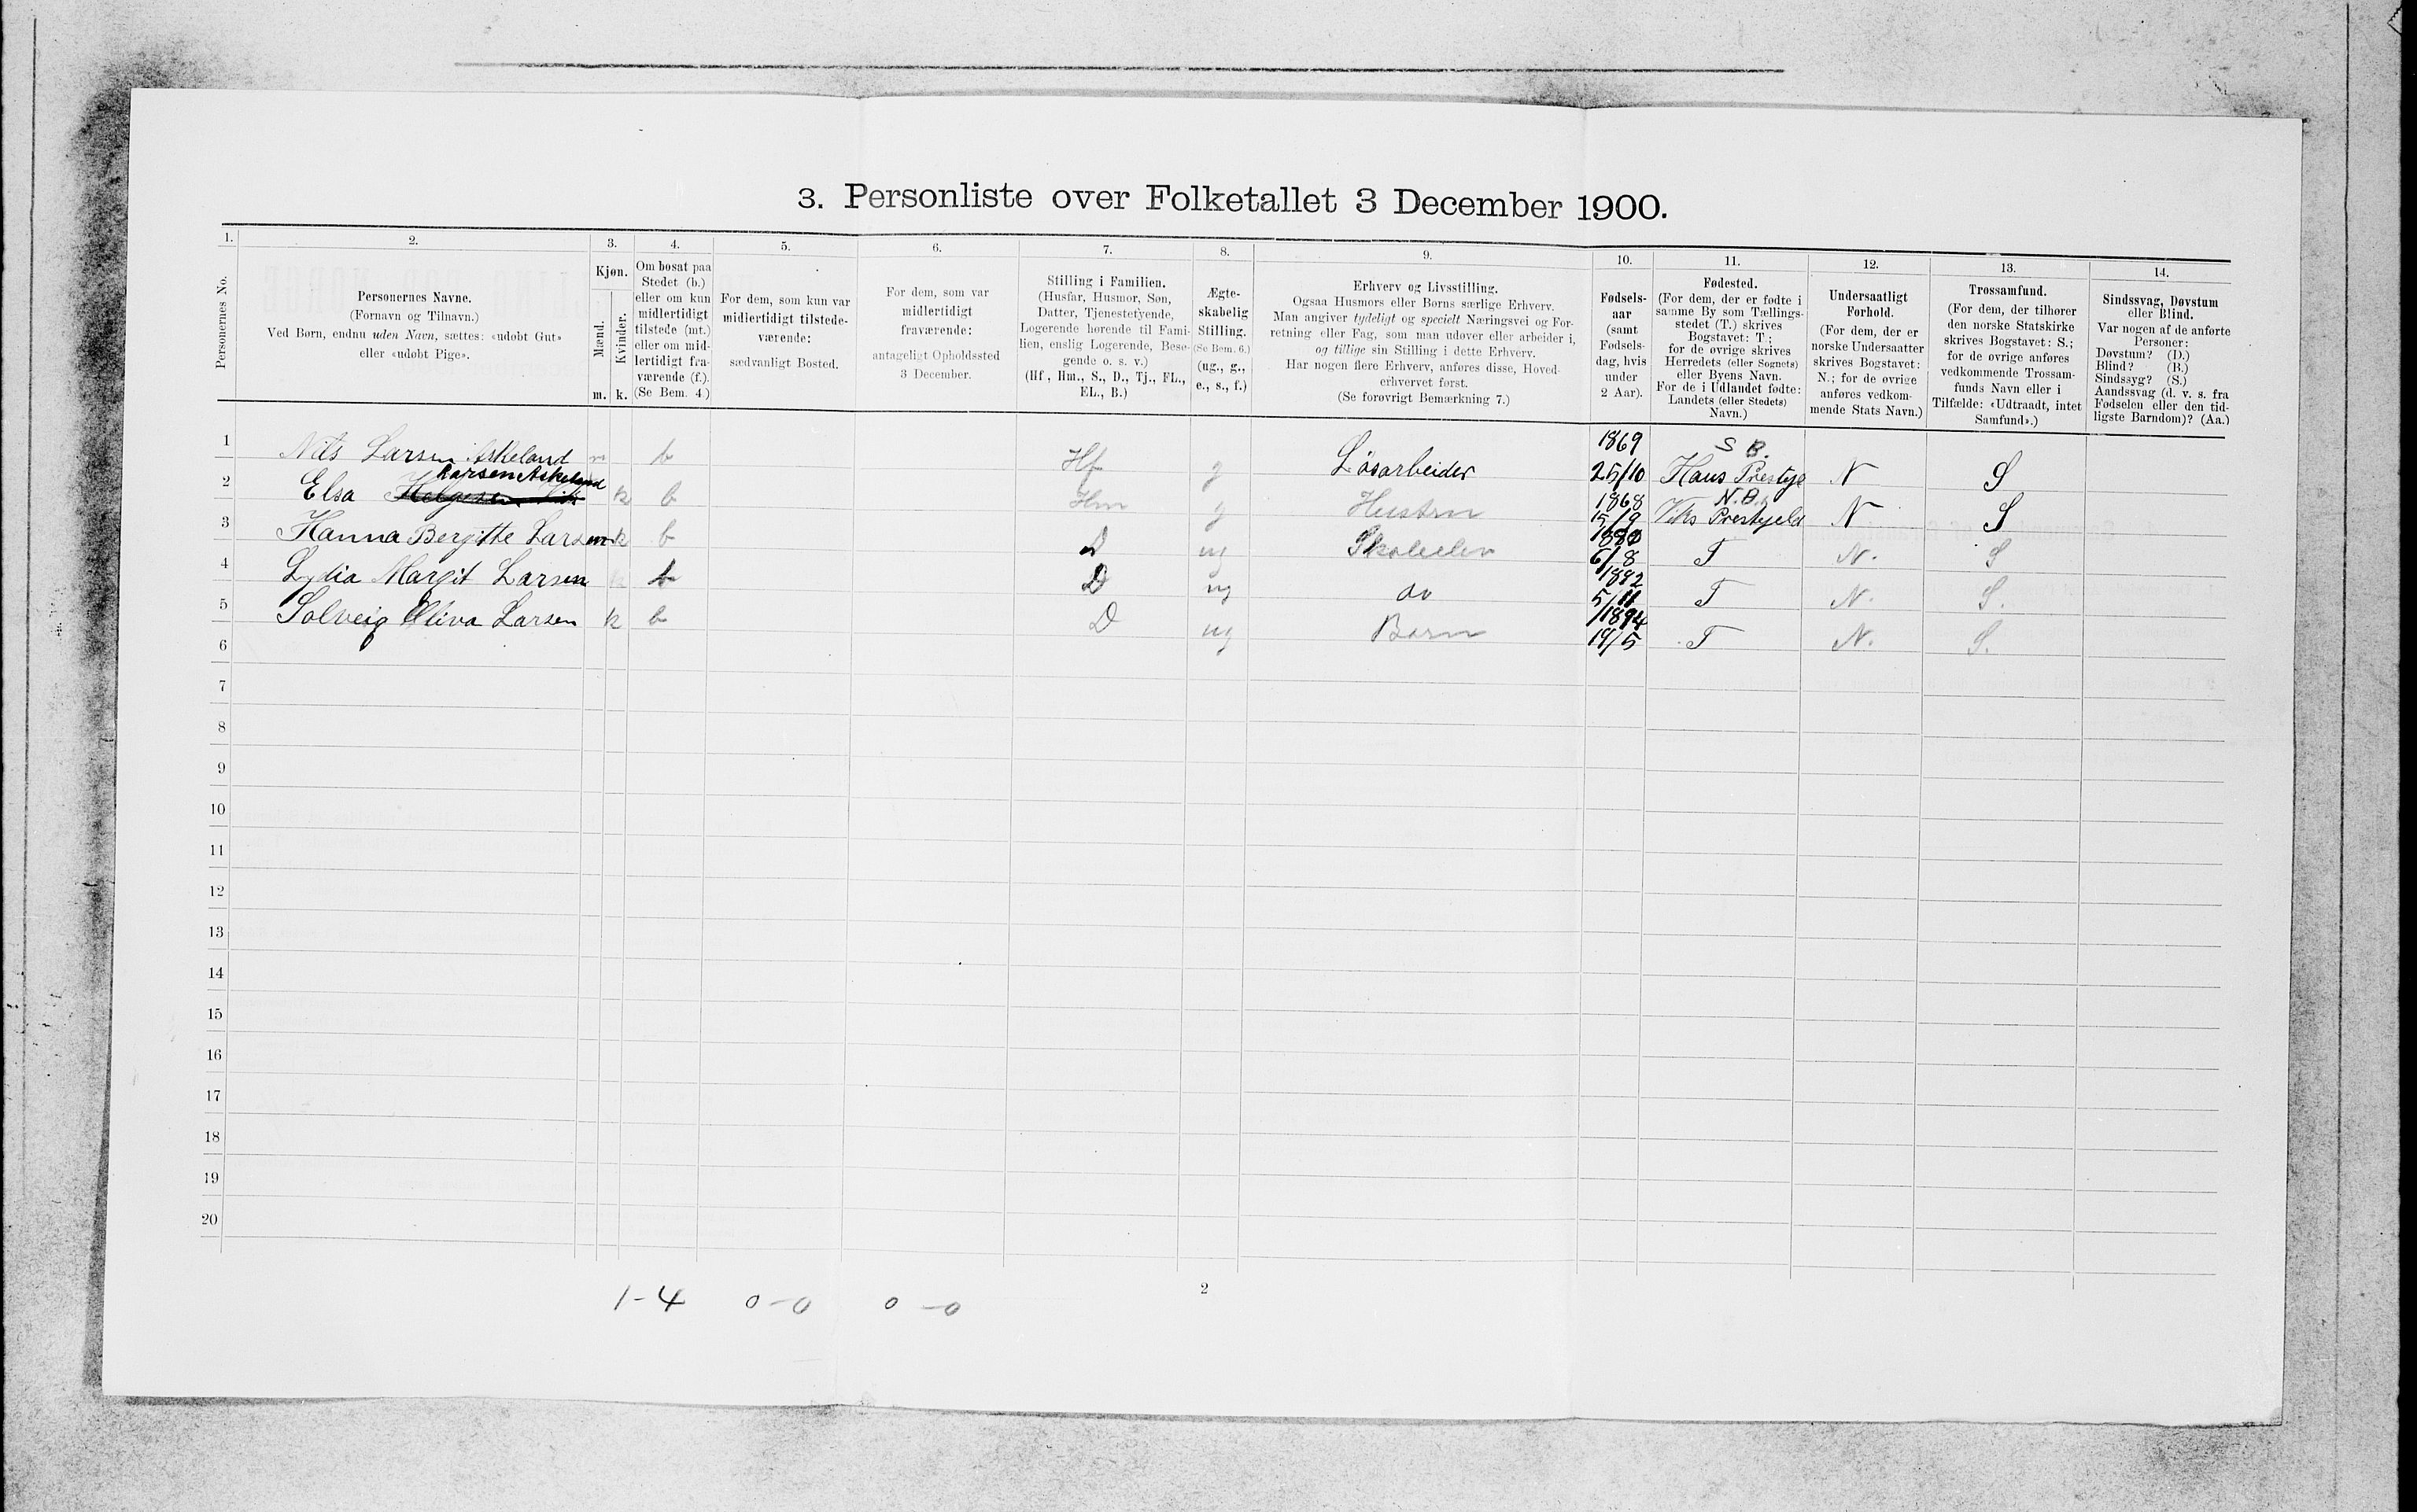 3. Personliste over Folketallet 3 December 1900.
1. 2. 3. 4. 5. 6. 7. 8. 9. 10. 11. 12. 13. 14.
Personernes No.
Personernes Navne.
(Fornavn og Tilnavn.)
Ved Børn, endnu uden Navn, sættes: «udøbt Gut»
eller «udøbt Pige».
Kjøn.
Mænd.
Kvinder.
m. k.
Om bosat paa
Stedet (b.)
eller om kun
midlertidigt
tilstede (mt.)
eller om mid-
lertidigt fra-
værende (f.).
(Se Bem. 4.)
For dem, som kun var
midlertidigt tilstede-
værende:
sædvanligt Bosted.
For dem, som var
midlertidigt
fraværende:
antageligt Opholdssted
3 December.
Stilling i Familien.
(Husfar, Husmor, Søn,
Datter, Tjenestetyende,
Logerende hørende til Fami-
lien, enslig Logerende, Besø-
gende o. s. v.)
(Hf., Hm., S., D., Tj., FL.,
EL., B.)
Ægte-
skabelig
Stilling.
(Se Bem. 6.)
(ug., g.,
e., s., f.)
Erhverv og Livsstilling.
Ogsaa Husmors eller Børns særlige Erhverv.
Man angiver tydeligt og specielt Næringsvei og For-
retning eller Fag, som man udøver eller arbeider i,
og tillige sin Stilling i dette Erhverv.
Har nogen flere Erhverv, anføres disse, Hoved-
erhvervet først.
(Se forøvrigt Bemærkning 7.)
Fødsels-
aar
(samt
Fødsels-
dag, hvis
under
2 Aar).
Fødested.
(For dem, der er fødte i
samme By som Tællings-
stedet (T.) skrives
Bogstavet: T.;
for de øvrige skrives
Herredets (eller Sognets)
eller Byens Navn.
For de i Udlandet fødte:
Landets (eller Stedets)
Navn.)
Undersaatligt
Forhold.
(For dem, der er
norske Undersaatter
skrives Bogstavet:
N.; for de øvrige
anføres vedkom-
mende Stats Navn.)
Trossamfund.
(For dem, der tilhører
den norske Statskirke
skrives Bogstavet: S.;
for de øvrige anføres
vedkommende Trossam-
funds Navn eller i
Tilfælde: «Udtraadt, intet
Samfund».)
Sindssvag, Døvstum
eller Blind.
Var nogen af de anførte
Personer:
Døvstum? (D.)
Blind? (B.)
Sindssyg? (S.)
Aandssvag (d. v. s. fra
Fødselen eller den tid-
ligste Barndom)? (Aa.)
1 Nils Larsen Askeland m b Hf g Løsarbeider 1869 25/10 S B. Haus Prestgje N S
Larsen Askeland
2 Elsa k b Hm g Hustru 1868 15/9 N.B. Viks Prestgjeld N S
3 Hanna Bergitte Larsen k b D ug Skoleelev 6/8 T N. S
4 Lydia Margit Larsen k b D ug do 1892 5/11 T N. S.
5 Solveig Oliva Larsen k b D ug Barn 1894 19/5 T N. S.
6
7
8
9
10
11
12
13
14
15
16
17
18
19
20
1-4 0-0 0-0
2